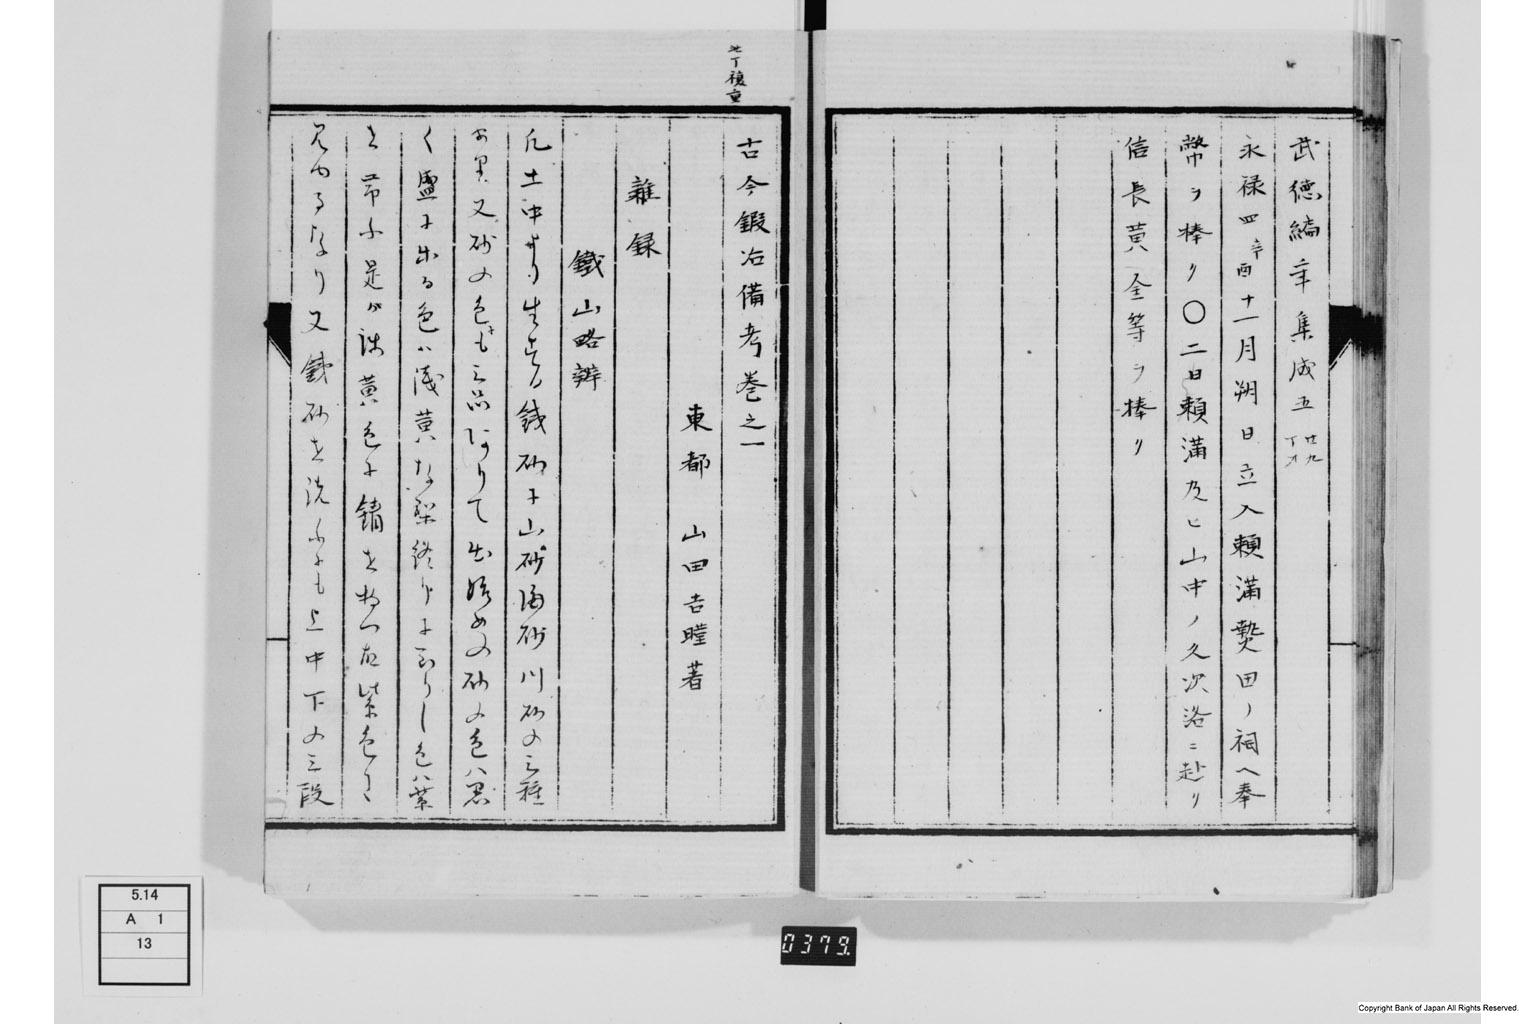 武徳編年集成五 廿九丁才
永禄四辛酉十一月朔日立入頼満熱田ノ祠ヘ奉
幣ヲ捧リ〇二日頼満及ヒ山中ノ久次洛ニ赴リ
信長黄金等ヲ捧リ
此丁複重
古今鍜冶備考巻之一
東都 山田吉睦著
雑録
鐵山略辨
凡土中より生する鉄砂に山砂海砂川砂の三種
あり又砂の色にも三品ありて出始めの砂の色ハ黒
く盛に出る色ハ浅黄な
黄色に錆を
又鉄砂を洗ふにも上中下の三段
5.14
A 1
13
0379
Copyright Bank of Japan All Rights Reserved.